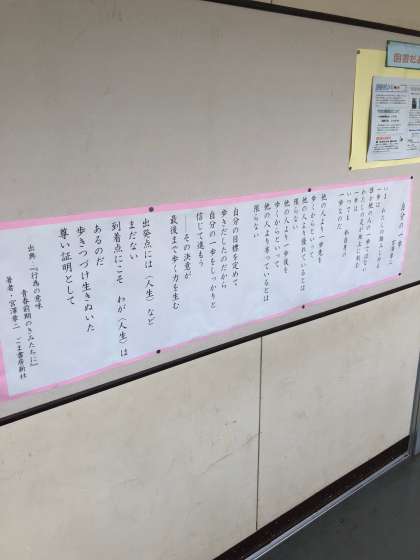 図書だよ
自分の一歩
誰か他の人の一歩ではなく
一歩は
一歩なのだ
他の人より一歩先を
歩くからといって
他の人より優れているとは
限らない
他の人より一歩後を
歩くからといって
他の人より劣っているとは
限らない
自分の目標を定めて
歩きだしたのだから
自分の一歩をしっかりと
信じて進もう
――その決意が
最後まで歩く力を生む
出発点には〈人生〉など
まだない
到着点にこそ わが〈人生〉は
あるのだ
歩きつづけ生きぬいた
尊い証明として
出典・『行為の意味
青春前期のきみたちに』
著者・宮澤章二 ごま書房新社